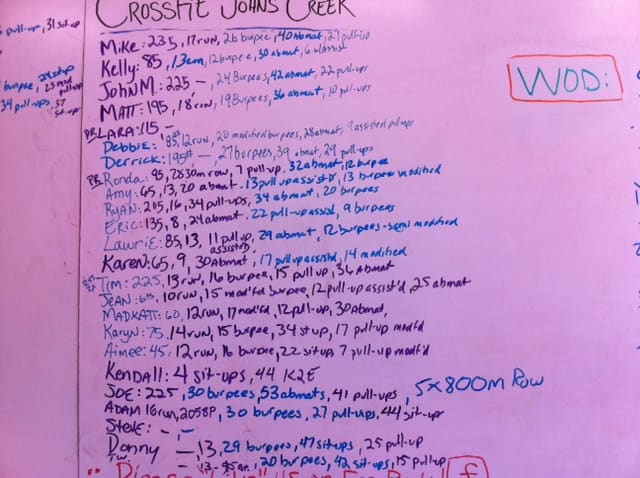 CROSSFIT JOHNS CREEK
pull-up, 31 sit up
burpee, 24 stup
pull-up
34 pull-ups, 37 sit-up
WOD:
Mike: 235, 17 run, 26 burpee, 40 Abmat, 27 pull-up
Kelly: 85, 13 run, 12 burpee, 30 abmat, 6
John M.: 225, —, 24 Burpees, 42 abmat, 22 pull-ups
Matt: 195, 18 row, 19 Burpees, 36 abmat, 10 pull-ups
PR LARA: 115 —
Debbie: 85, 12 run, 20 modified burpees, 28 abmat, 9 assisted pullups
Derrick: 195 — , 27 burpees, 39 abmat, 29 pull-ups
PR Ronda: 95, 2830m row, 7 pull-up, 32 abmat, 12 burpee
Amy: 65, 13, 20 abmat, 13 pullup assist'd, 13 burpees modified
Ryan: 205, 16, 34 pull-ups, 34 abmat, 20 burpees
Eric: 135, 8, 24 abmat, 22 pull-up assist, 9 burpees
Laurie: 85, 13, 11 pullup assisted, 29 abmat, 12 burpees-semi modified
Karen: 65, 9, 30 Abmat, 17 pullup assistd, 14 modified
Tim: 225, 13 run, 16 burpee, 15 pullup, 36 Abmat
Jean: 65, 10 run, 15 mod'fd burpee, 12 pull-up assist'd, 25 abmat
MADKATT: 60, 12 run, 17 mod'fd, 12 pull-up, 30 Abmat,
Karyn: 75, 14 run, 15 burpee, 34 st up, 17 pull-up modfd
Aimee: 45, 12 run, 16 burpee, 22 situps, 7 pull-up modf'd
Kendall: 4 sit-ups, 44 K2E
Joe: 225, 30 burpees, 53 abmats, 41 pull-ups, 5x800m Row
ADAM 16 run, 205BP, 30 burpees, 27 pull-ups, 44 sit-up
Steve: - , -
Donny — 13, 29 burpees, 47 sit-ups, 25 pull-up
T.W. — 13 - 95 , 20 burpees, 42 sit-ups, 15 pullup